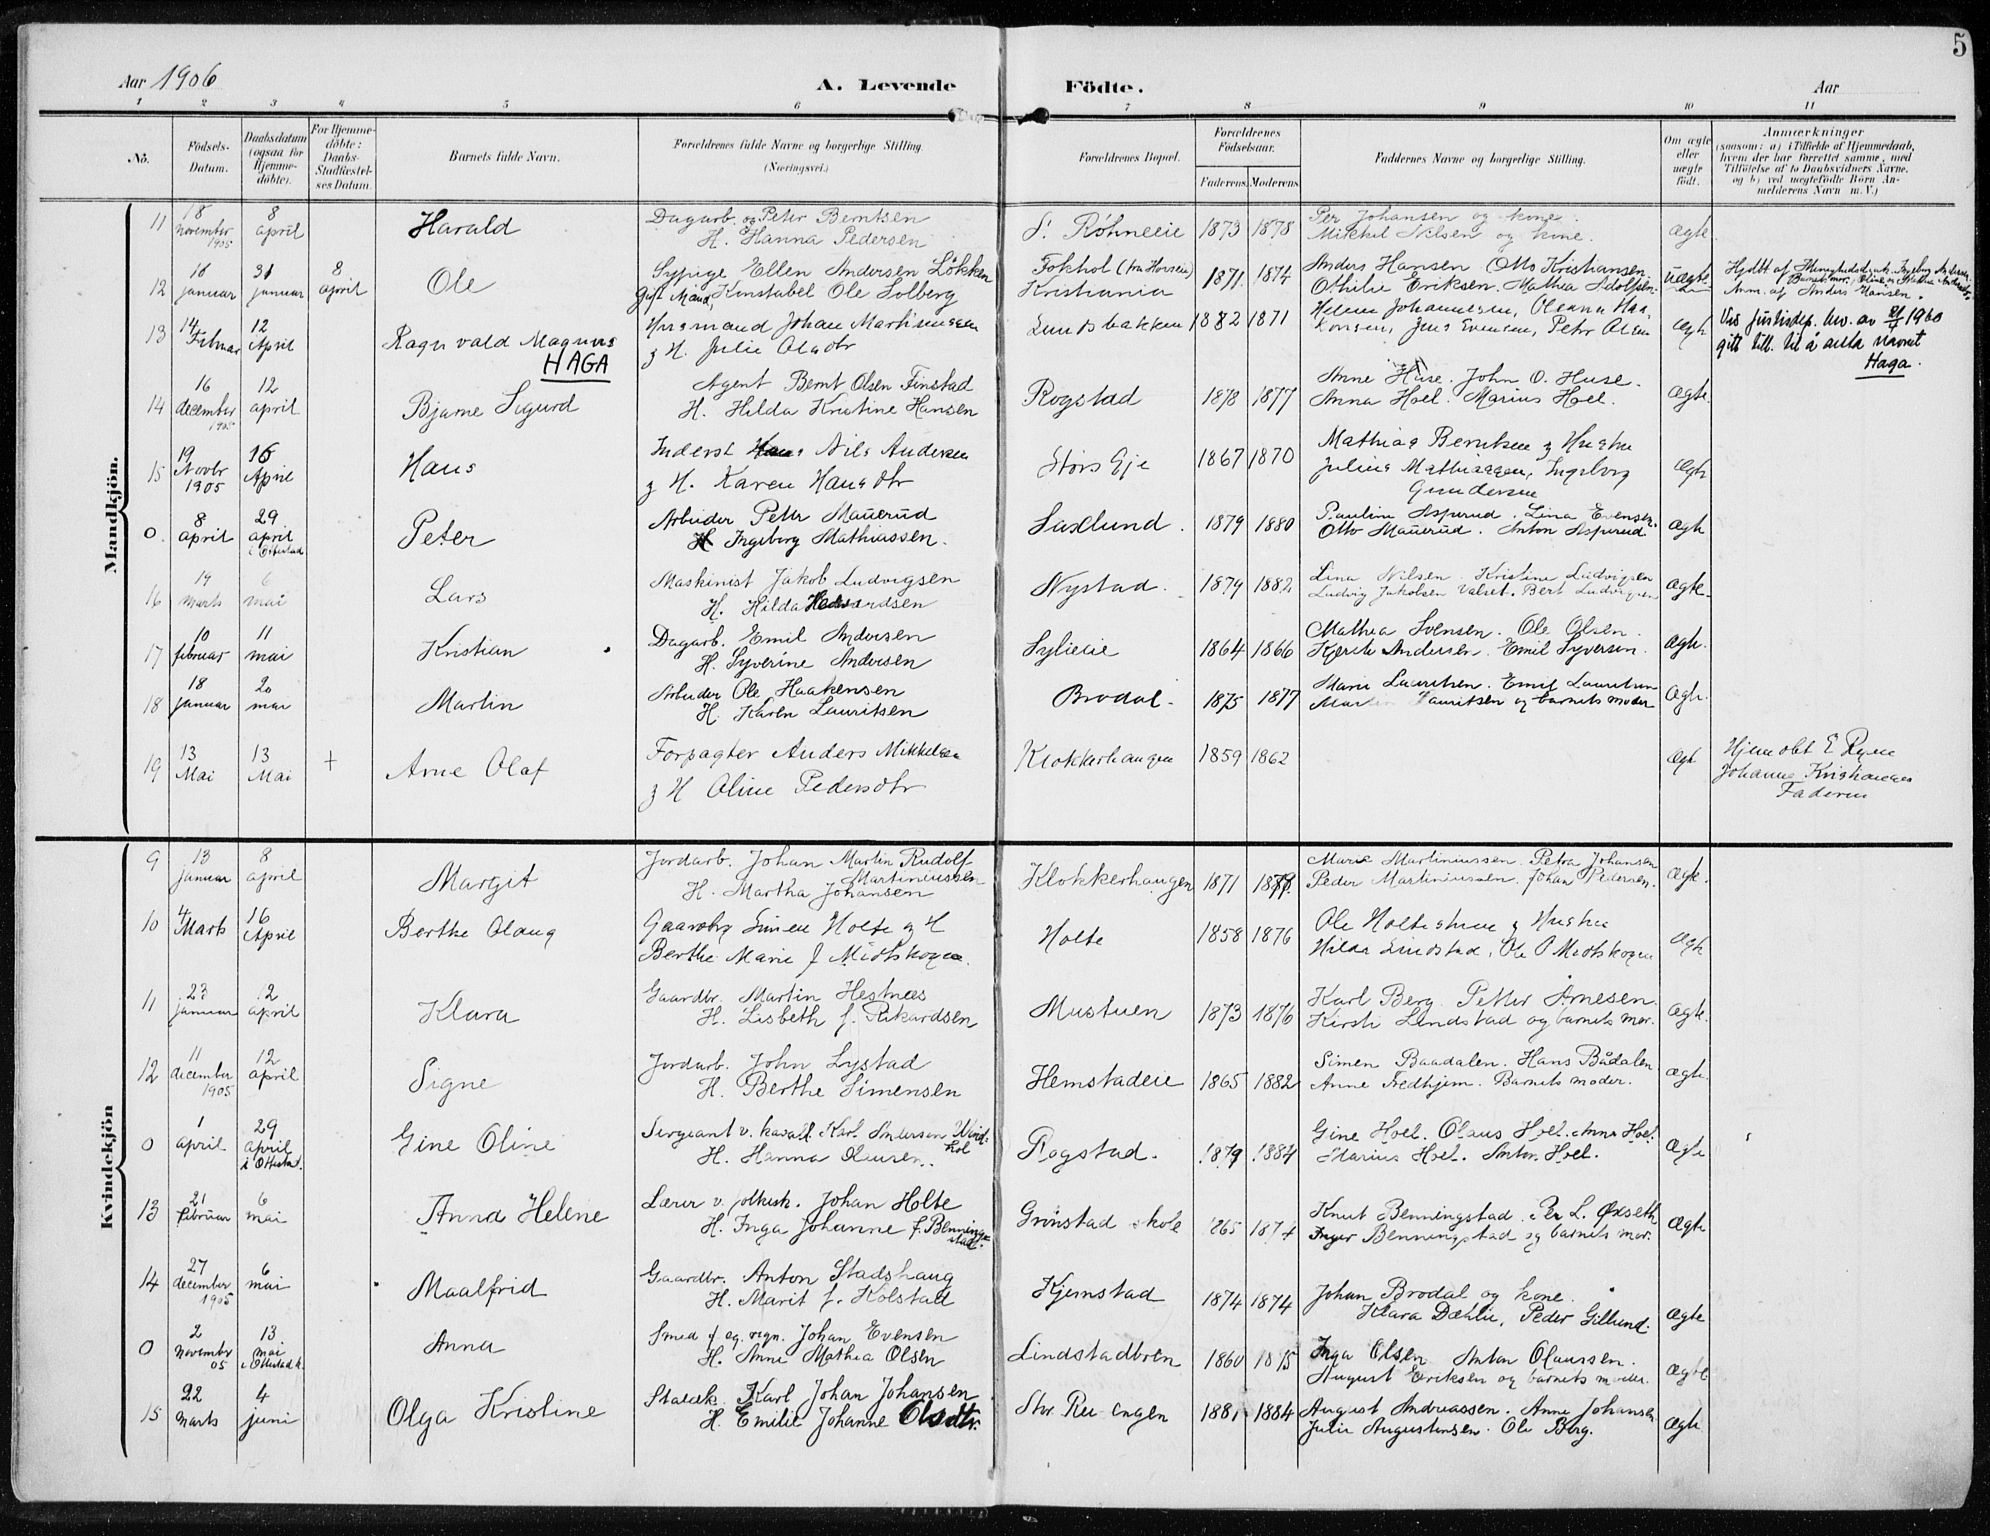 5
Aar 1906 A. Levende Födte. Aar
1 2 3 4 5 6 7 8 9 10 11
Nô. Födsels-Datum. Daabsdatum (ogsaa for Hjemme-döbte). For Hjemme-döbte: Daabs-Stadfæstel-ses Datum. Barnets fulde Navn. Forældrenes fulde Navne og borgerlige Stilling. (Næringsvei.) Forældrenes Bopæl. Forældrenes Födselsaar. Faderens. Moderens. Faddernes Navne og borgerlige Stilling. Om ægte eller uægte födt. Anmærkninger (saasom: a) i Tilfælde af Hjemmedaab, hvem der har forrettet samme, med Tilföielse af to Daabsvidners Navne. og b) ved uægtefödte Börn An-melderens Navn m. V.)
Mandkjön.
11 18 november 1905 8 april Harald Dagarb. og Peter Berntsen
H. Hanna Pedersen S. Røhneeie 1873 1878 Per Johansen og kone.
Mikkel Nilsen og kone. ægte.
12 16 januar 31 januar 8 april Ole Sypige Ellen Andersen Løkken
Gift Mand, Konstabel Ole Solberg Fokhol (fra Horseie)
Kristiania 1871. 1874 Anders Hansen Otto Kristiansen
Othilie Eriksen. Mathea Adolfsen. uægte.
Anm. af Anders Hansen.
13 14 Februar 12 April Ragnvald Magnus
HAGA Husmand Johan Martinussen
g H. Julie Olsdtr Lundsbakken 1882 1871 Helene Johannesen, Oleana Haa-
konsen, Jens Evensen, Petr Olsen Ægte Ved justisdep. bev. av 21/4 1960
gitt till. til å anta navnet
Haga.
14 16 december 1905 12 april Bjarne Sigurd Agent Bernt Olsen Finstad
H. Hilda Kristine Hansen Rogstad 1878 1877 Anne Huse. John O. Huse.
Anna Hoel. Marius Hoel. Ægte.
15 19 Novbr 1905 16 April Hans Inderst Nils Andersen
g H. Karen Hansdtr Stors Eje 1867 1870 Mathias Berntsen g Hustru
Julius Mathiassen, Ingeborg
Gundersen Ægte
0. 8 april 29 april i Ottestad Peter Arbeider Petter Mauerud
H Ingeborg Mathiassen. Saxlund. 1879 1880 Pauline Aspurud. Lina Evensen.
Otto Mauerud. Anton Aspurud. Ægte
16 19 marts 6 mai Lars Maskinist Jakob Ludvigsen
H. Hilda Nystad. 1879 1882 Lina Nilsen. Kristine Ludvigsen
Ludvig Jakobsen Valset. Bert Ludvigsen Ægte.
17 10 februar 11 mai Kristian Dagarb. Emil Andersen
H. Syverine Andersen Sylieeie 1864 1866 Mathea Svensen. Ole Olsen.
Kjersti Andersen. Emil Syversen. Ægte.
18 18 januar 20 mai Martin Arbeider Ole Haakensen
H. Karen Lauritsen Brodal. 1875 1877 Marie Lauritsen. Emil Lauritsen
Martin Lauritsen og barnets moder Ægte.
19 13 Mai 13 Mai + Arne Olaf Forpagter Anders Mikkelsen
g H Oline Pedersdtr Klokkerhaugen 1859 1862 Ægt Hjemdøbt E Ryen
Johanne Kristiansen
Faderen
Kvindekjön
9 13 januar 8 april Margit Jordarb. Johan Martin Rudolf
Martiniussen
H. Martha Johansen Klokkerhaugen 1871 Marie Martiniussen. Petra Johansen
Peder Martiniussen. Johan Pedersen. Ægte.
10 4 Marts 16 April Berthe Olaug Gaardbr Simen Holte og H
Berthe Marie f Midtskogen. Holte 1858 1876 Ole Holtestuen g Hustru
Hilda Lindstad, Ole P Midtskogen Ægte
11 23 januar 12 april Klara Gaardbr. Martin Hestnæs
H. Lisbeth f. Rikardsen Mustuen 1873 1876 Karl Berg. Petter Arnesen.
Kirsti Lindstad og barnets mor. Ægte.
12 11 december 1905 12 april Signe Jordarb. John Lystad
H. Berthe Simensen Hemstadeie 1865 1882 Simen Baadalen. Hans Bådalen
Anne Fredhjem. Barnets moder. Ægte.
0 1 april 29 april i Ottestad. Gine Oline Sergeant v. kavall. Karl Andersen Vind-
hol
H. Hanna Olausen. Rogstad. 1879 1884 Gine Hoel. Olaus Hoel. Anna Hoel.
Marius Hoel. Anton Hoel. Ægte
13 21 februar 6 mai Anna Helene Lærer v. folkesk. Johan Holte
H. Inga Johanne f. Bennings-
stad. Grønstad skole 1865 1874 Knut Benningstad. Per L. Øxseth
Inger Benningstad og barnets mor. Ægte
14 27 december 1905 6 mai Maalfrid Gaardbr. Anton Stadshaug
H. Marit f. Kolstad Kjemstad 1874 1874 Johan Brodal og kone.
Klara Dæhlie, Peder Gillund. Ægte
0 2 november 05 13 mai i Ottestad k. Anna Smed f eg. regn. Johan Evensen
H. Anne Mathea Olsen Lindstadbren 1860 1875 Inga Olsen Anton Olaussen.
August Eriksen og barnets moder. Ægte
15 22 marts 4 juni Olga Kristine Karl Johan Johansen
H. Emilie Johanne Olsdtr. 1881 1884 August Andreassen. Anne Johansen
Julie Augustinsen. Ole Berg. Ægte